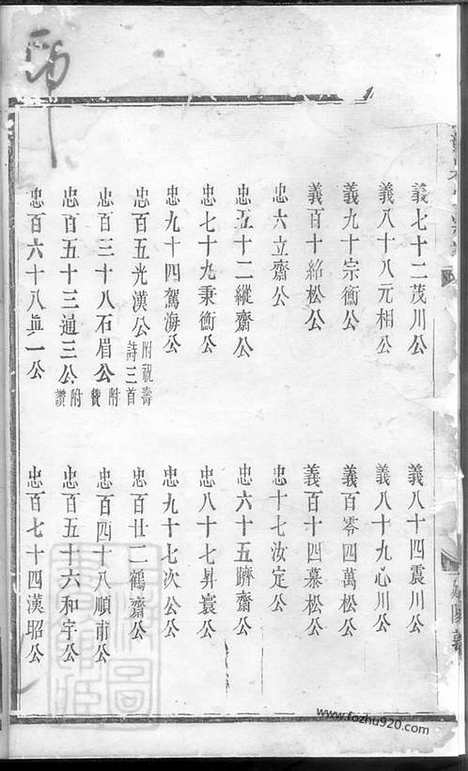 義七十二茂川公
義八十四震川公
義八十八元相公
義八十九心川公
義九十宗衡公
義百零四萬松公
義百十紹松公
義百十四慕松公
忠六立齋公
忠十七汝定公
忠五十二縱齋公
忠六十五躋齋公
忠七十九秉衡公
忠八十七昇寰公
忠九十四駕海公
忠九十七次公公
忠百五光漢公 附祝壽詩三首
忠百廿二鶴齋公
忠百三十八石眉公 附贊
忠百四十八順甫公
忠百五十三通三公 附讚
忠百五十六和宇公
忠百六十八真一公
忠百七十四漢昭公
www.fozhu920.com